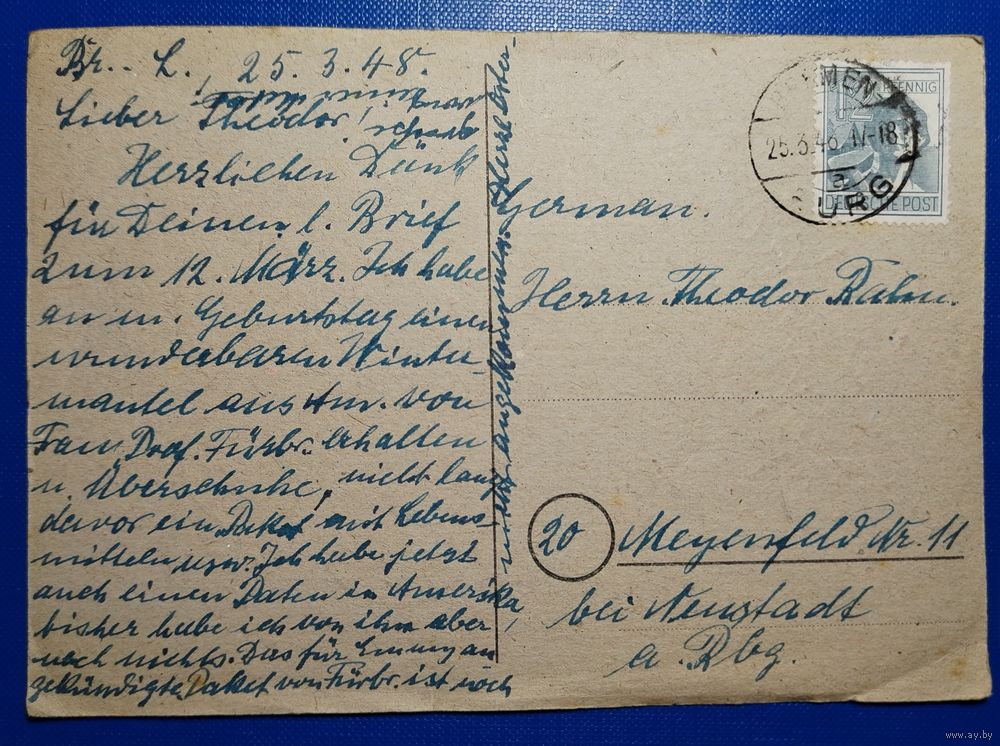 Br.-L., 25.3.48.
Lieber Theodor!
Herzlichen Dank
für Deinen l. Brief
zum 12. März. Ich habe
an m. Geburtstag einen
wunderbaren Winter-
mantel aus Am. von
Frau Prof. Fürbr. erhalten
u. Überschuhe, nicht lang
davor ein Paket mit Lebens-
mitteln usw. Ich habe jetzt
auch einen Paten in Amerika,
bisher habe ich von ihm aber
noch nichts. Das für Emmy an
gekündigte Paket von Fürbr. ist noch
nicht angekommen. Herzl. Oster-
BREMEN-
25.3.48.17-18
a
BURG
12 PFENNIG
DEUTSCHE POST
German.
Herrn Theodor Rahn.
20
Meyenfeld Nr. 11
bei Neustadt
a. Rbg.
www.ay.by